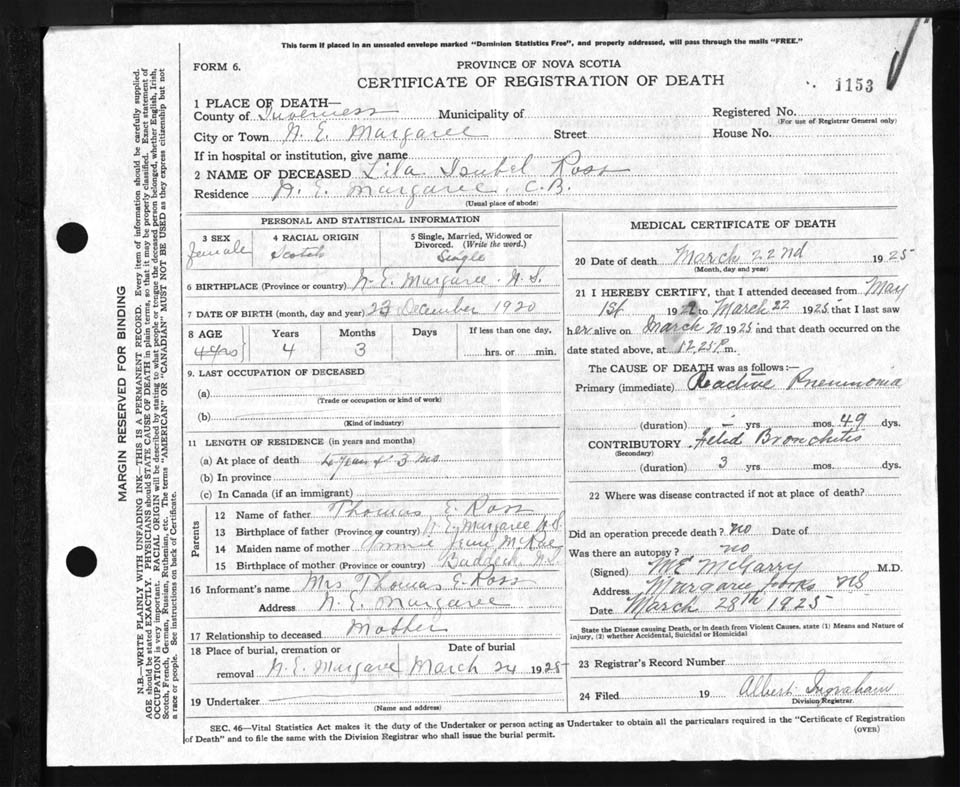 This form if placed in an unsealed envelope marked "Dominion Statistics Free", and properly addressed, will pass through the mails "FREE."
FORM 6.
PROVINCE OF NOVA SCOTIA
CERTIFICATE OF REGISTRATION OF DEATH
1153
1 PLACE OF DEATH—
County of Inverness Municipality of Registered No.
(For use of Registrar General only)
City or Town N. E. Margaree Street House No.
If in hospital or institution, give name
2 NAME OF DECEASED Lila Isabel Ross
Residence N. E. Margaree, C.B.
(Usual place of abode)
PERSONAL AND STATISTICAL INFORMATION
3 SEX 4 RACIAL ORIGIN 5 Single, Married, Widowed or Divorced. (Write the word.)
female Scotch Single
6 BIRTHPLACE (Province or country) N. E. Margaree. N. S.
7 DATE OF BIRTH (month, day and year) 23 December 1920
8 AGE Years Months Days If less than one day,
4 yrs 4 3 hrs. or min.
9. LAST OCCUPATION OF DECEASED
(a)
(Trade or occupation or kind of work)
(b)
(Kind of industry)
11 LENGTH OF RESIDENCE (in years and months)
(a) At place of death 4 years & 3 mo
(b) In province
(c) In Canada (if an immigrant)
Parents
12 Name of father Thomas E. Ross
13 Birthplace of father (Province or country) N. E. Margaree N.S.
14 Maiden name of mother Jane McRae
15 Birthplace of mother (Province or country) Baddeck, N.S.
16 Informant's name Mrs Thomas E. Ross
Address N. E. Margaree
17 Relationship to deceased Mother
18 Place of burial, cremation or removal Date of burial
N. E. Margaree March 24 1925
19 Undertaker
(Name and address)
MEDICAL CERTIFICATE OF DEATH
20 Date of death March 22nd 1925
(Month, day and year)
21 I HEREBY CERTIFY, that I attended deceased from May
1st 192 to March 22 1925 that I last saw
her alive on March 20 1925 and that death occurred on the
date stated above, at 12.25 P. m.
The CAUSE OF DEATH was as follows:—
Primary (immediate) Pneumonia
(duration) - yrs mos. 49 dys.
CONTRIBUTORY Fetid Bronchitis
(Secondary)
(duration) 3 yrs mos. dys.
22 Where was disease contracted if not at place of death?
Did an operation precede death? no Date of
Was there an autopsy? no
(Signed) M E McGarry M.D.
Address Margaree Forks NS
Date March 28th 1925
State the Disease causing Death, or in death from Violent Causes, state (1) Means and Nature of
Injury, (2) whether Accidental, Suicidal or Homicidal
23 Registrar's Record Number
24 Filed 19 Albert Ingraham
Division Registrar.
SEC. 46—Vital Statistics Act makes it the duty of the Undertaker or person acting as Undertaker to obtain all the particulars required in the "Certificate of Registration
of Death" and to file the same with the Division Registrar who shall issue the burial permit.
(OVER)
MARGIN RESERVED FOR BINDING
N.B.—WRITE PLAINLY WITH UNFADING INK—THIS IS A PERMANENT RECORD. Every item of information should be carefully supplied.
AGE should be stated EXACTLY. PHYSICIANS should STATE CAUSE OF DEATH in plain terms, so that it may be properly classified. Exact statement of
OCCUPATION is very important. RACIAL ORIGIN will be described by stating to what people or tongue the deceased person belonged, whether English, Irish,
Scotch, French, German, Russian, Ruthenian, etc. The terms "AMERICAN" OR "CANADIAN" MUST NOT BE USED as they express citizenship but not
a race or people. See instructions on back of Certificate.